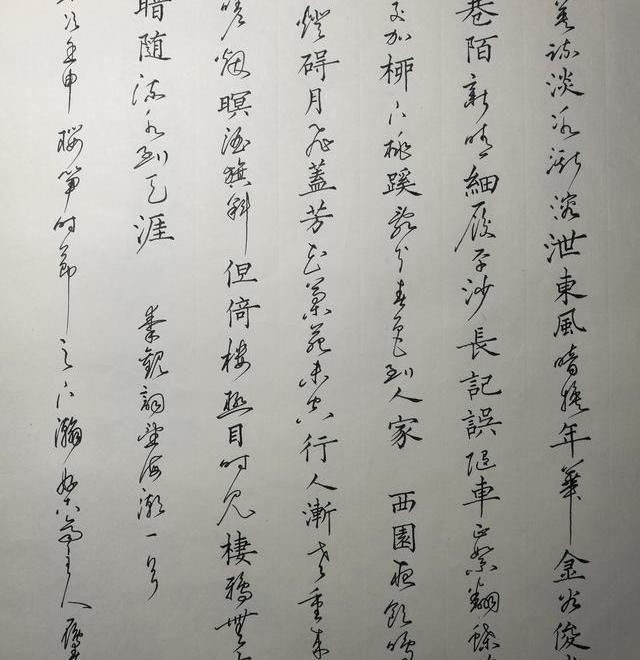 英疏淡冰澌溶泄東風暗換年華金谷俊
巷陌新晴細履平沙長記誤隨車正絮翻蝶
交加柳下桃蹊亂分春色到人家 西園夜飲鳴
燈礙月飛蓋芳花蘭苑未空行人漸老重來
嗟烟暝酒旗斜但倚樓極目時見棲鴉無
暗随流水到天涯 秦觀詞望海潮一首
次壬申櫻筍時節之下瀚 主人